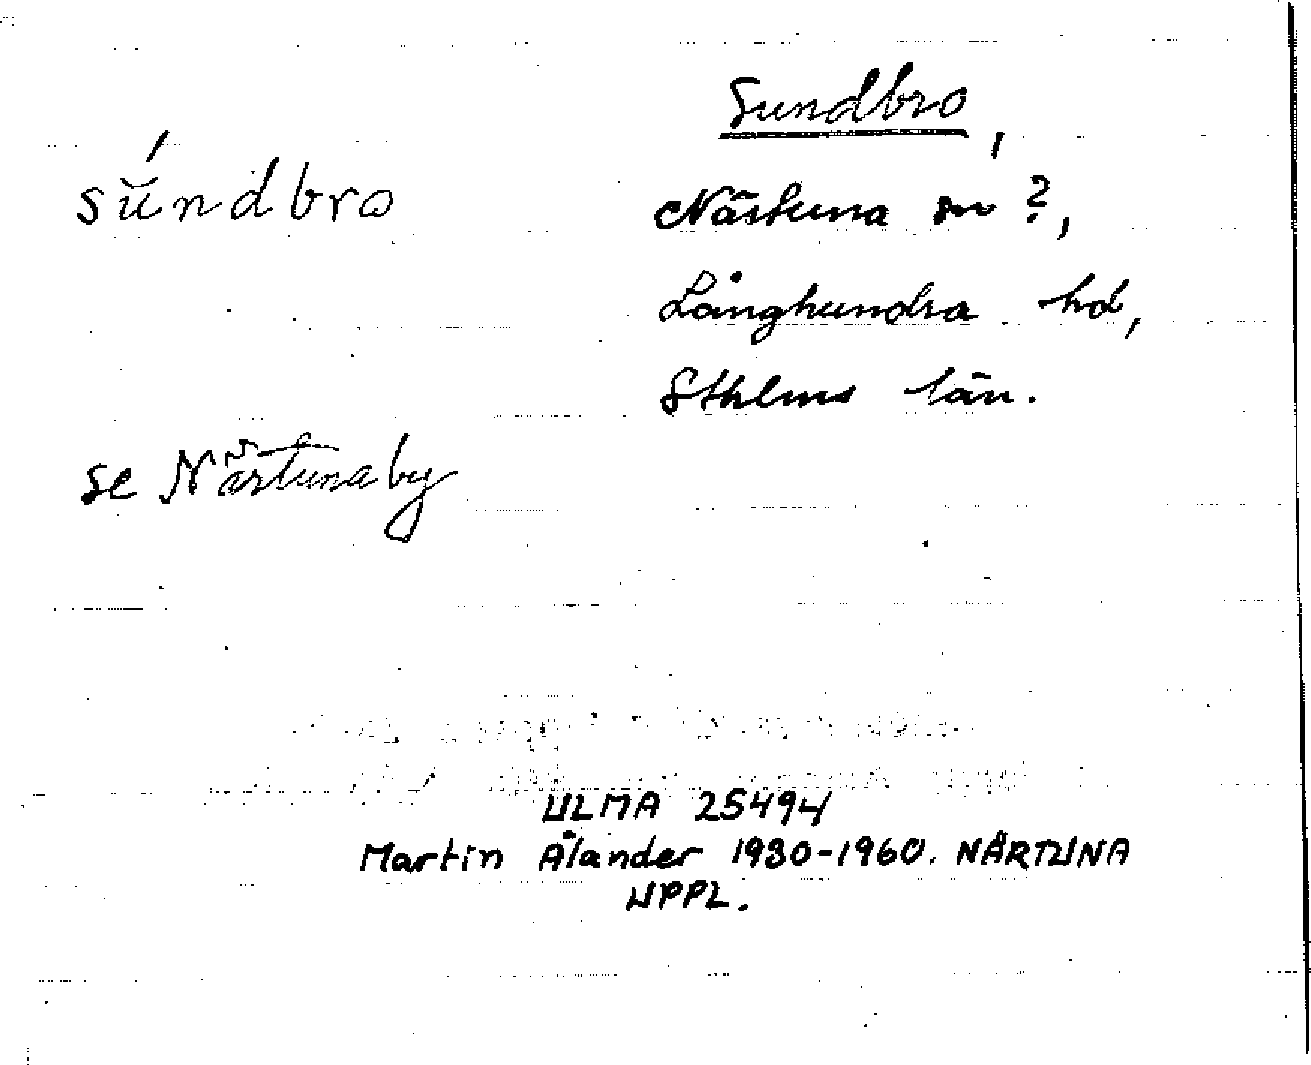 Sundbro,
sŭ́ndbro
Närtuna sn ?,
Långhundra hd,
Sthlms län.
se Närtunaby
ULMA 25494
Martin Ålander 1930-1960. NÄRTUNA
UPPL.